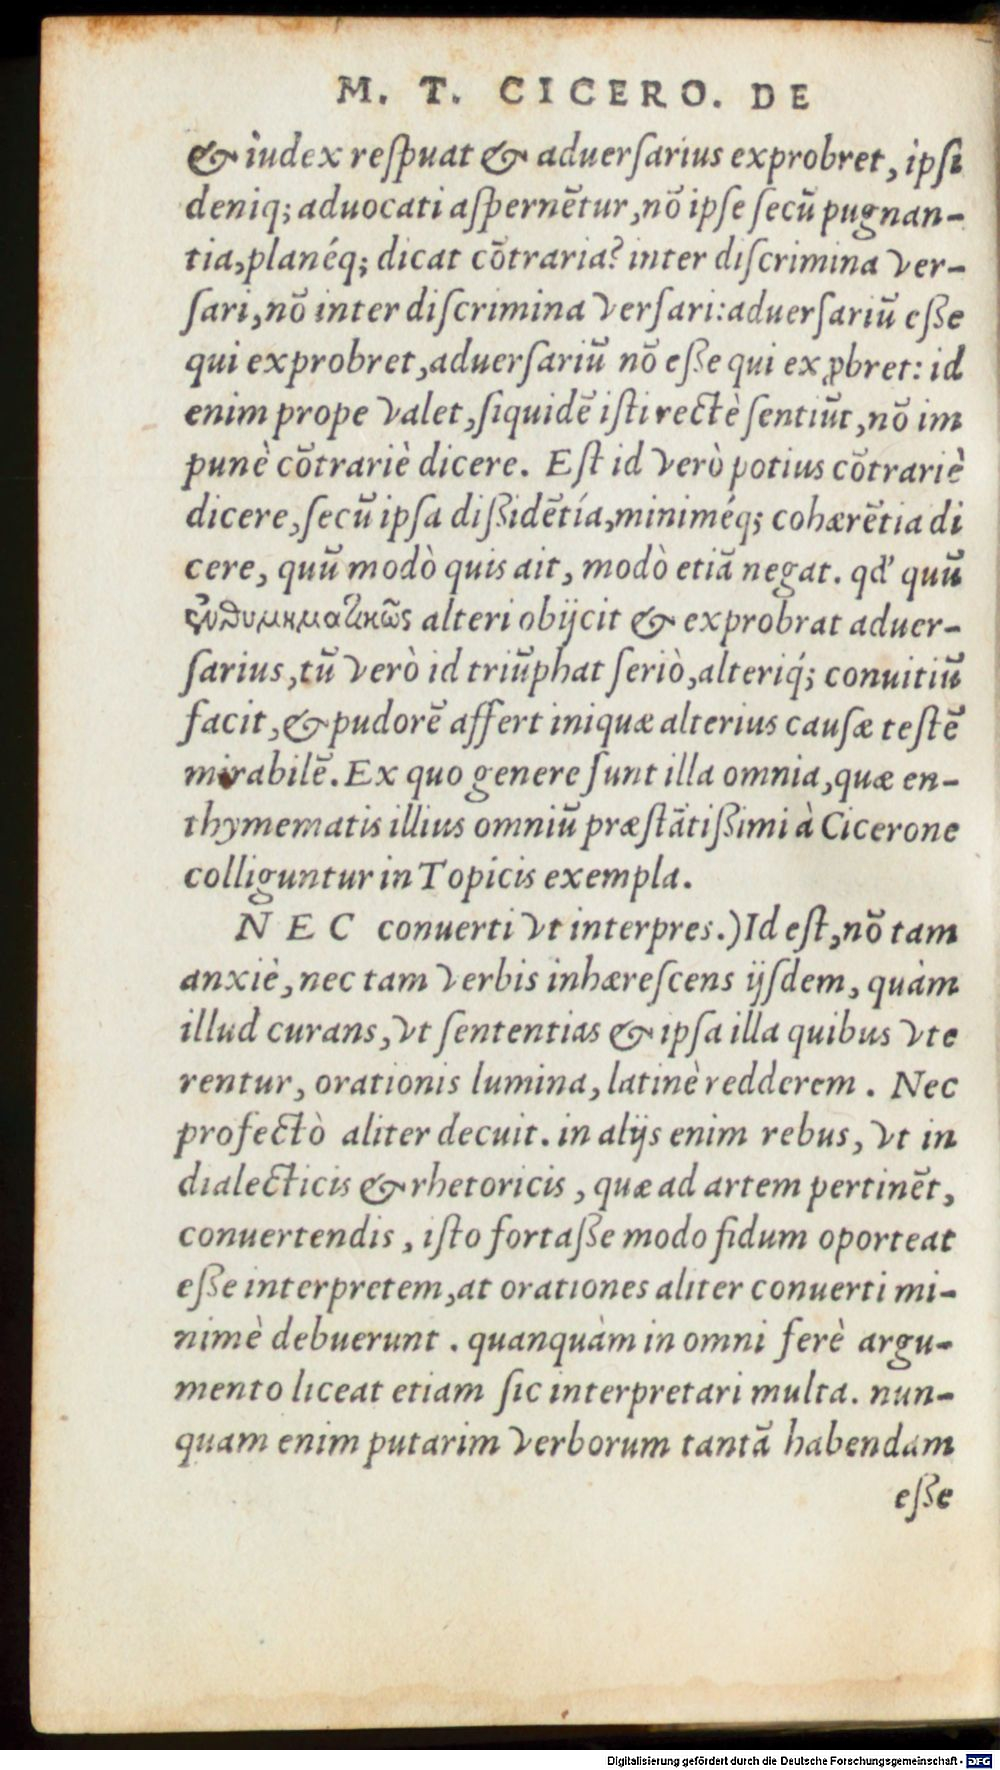 M. T. CICERO. DE
& iudex reſpuat & aduerſarius exprobret, ipſi
deniq; aduocati aſpernētur, nō ipſe ſecū pugnan-
tia, planéq; dicat cōtraria? inter diſcrimina ver-
ſari, nō inter diſcrimina verſari: aduerſariū eſſe
qui exprobret, aduerſariū nō eſſe qui exꝓbret: id
enim prope valet, ſiquidē iſti rectè ſentiūt, nō im
punè cōtrariè dicere. Eſt id verò potius cōtrariè
dicere, ſecū ipſa diſſidētía, miniméq; cohærētia di
cere, quū modò quis ait, modò etiā negat. qd' quū
ἐνθυμηματικῶς alteri obijcit & exprobrat aduer-
ſarius, tū verò id triūphat ſeriò, alteriq́; conuitiū
facit, & pudorē affert iniquæ alterius cauſæ teſtē
mirabilē. Ex quo genere ſunt illa omnia, quæ en-
thymematis illius omniū præſtātiſſimi à Cicerone
colliguntur in Topicis exempla.
NEC conuerti vt interpres.) Id eſt, nō tam
anxiè, nec tam verbis inhæreſcens ijſdem, quàm
illud curans, vt ſententias & ipſa illa quibus vte
rentur, orationis lumina, latinè redderem. Nec
profectò aliter decuit. in alijs enim rebus, vt in
dialecticis & rhetoricis, quæ ad artem pertinēt,
conuertendis, iſto fortaſſe modo fidum oporteat
eſſe interpretem, at orationes aliter conuerti mi-
nimè debuerunt. quanquàm in omni ferè argu-
mento liceat etiam ſic interpretari multa. nun-
quam enim putarim verborum tantā habendam
eſſe
Digitalisierung gefördert durch die Deutsche Forschungsgemeinschaft - DFG